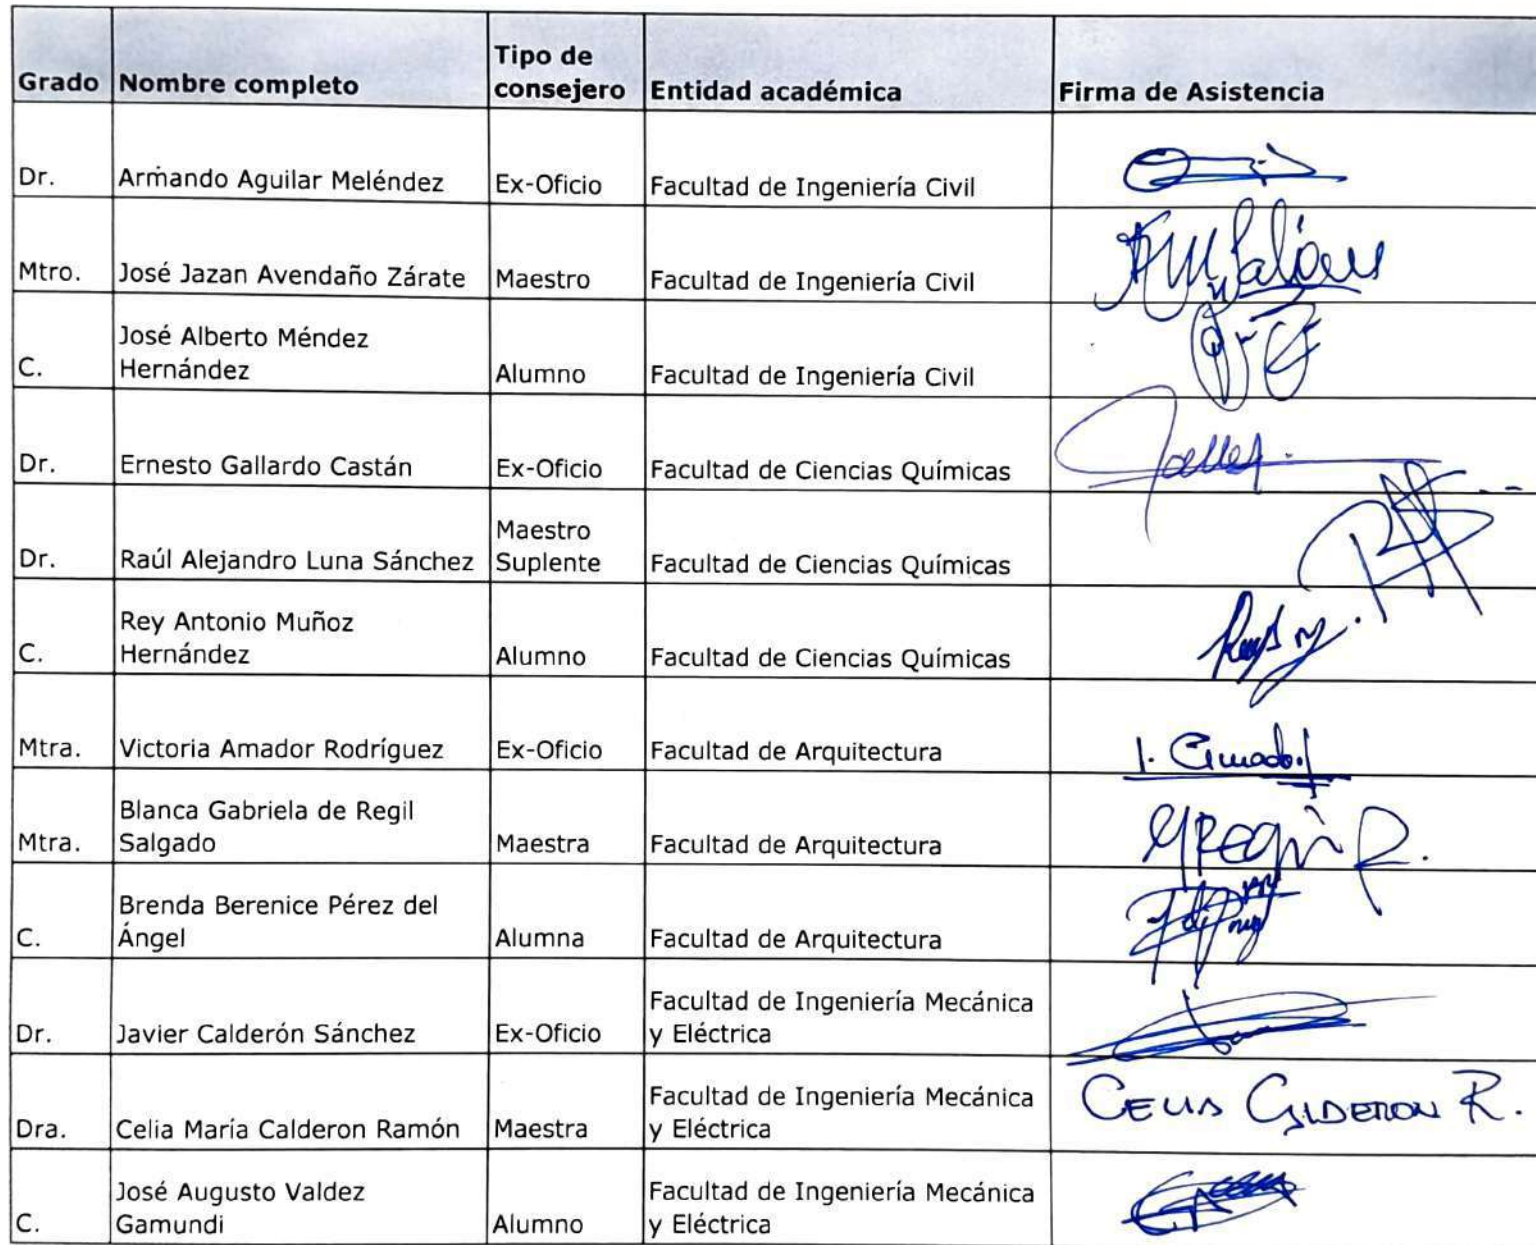 Grado Nombre completo Tipo de consejero Entidad académica Firma de Asistencia
Dr. Armando Aguilar Meléndez Ex-Oficio Facultad de Ingeniería Civil
Mtro. José Jazan Avendaño Zárate Maestro Facultad de Ingeniería Civil
José Alberto Méndez
C. Hernández Alumno Facultad de Ingeniería Civil
Dr. Ernesto Gallardo Castán Ex-Oficio Facultad de Ciencias Químicas
Maestro
Dr. Raúl Alejandro Luna Sánchez Suplente Facultad de Ciencias Químicas
Rey Antonio Muñoz
C. Hernández Alumno Facultad de Ciencias Químicas
Mtra. Victoria Amador Rodríguez Ex-Oficio Facultad de Arquitectura
Blanca Gabriela de Regil
Mtra. Salgado Maestra Facultad de Arquitectura
Brenda Berenice Pérez del
C. Ángel Alumna Facultad de Arquitectura
Facultad de Ingeniería Mecánica
Dr. Javier Calderón Sánchez Ex-Oficio y Eléctrica
Facultad de Ingeniería Mecánica
Dra. Celia María Calderon Ramón Maestra y Eléctrica CELIA CALDERON R.
José Augusto Valdez Facultad de Ingeniería Mecánica
C. Gamundi Alumno y Eléctrica